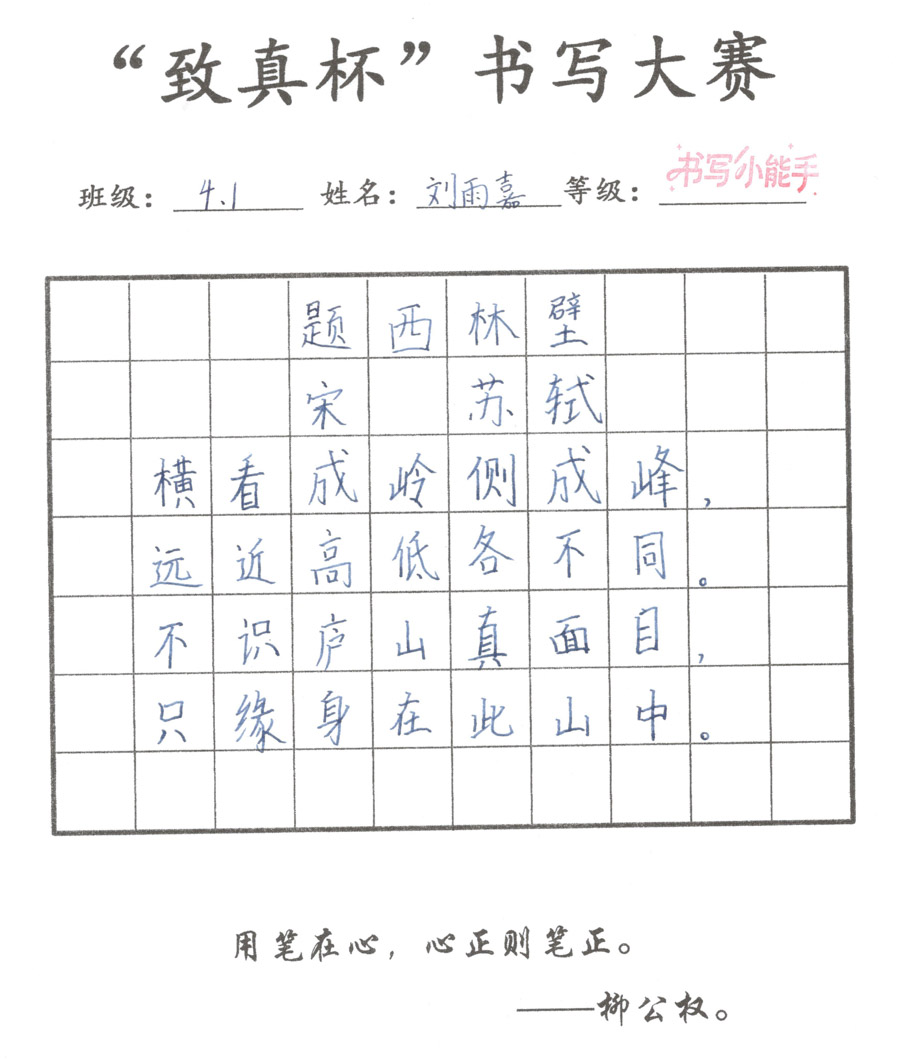 “致真杯”书写大赛
班级：4.1 姓名：刘雨嘉 等级：书写小能手
题西林壁
宋 苏轼
横看成岭侧成峰，
远近高低各不同。
不识庐山真面目，
只缘身在此山中。
用笔在心，心正则笔正。
——柳公权。